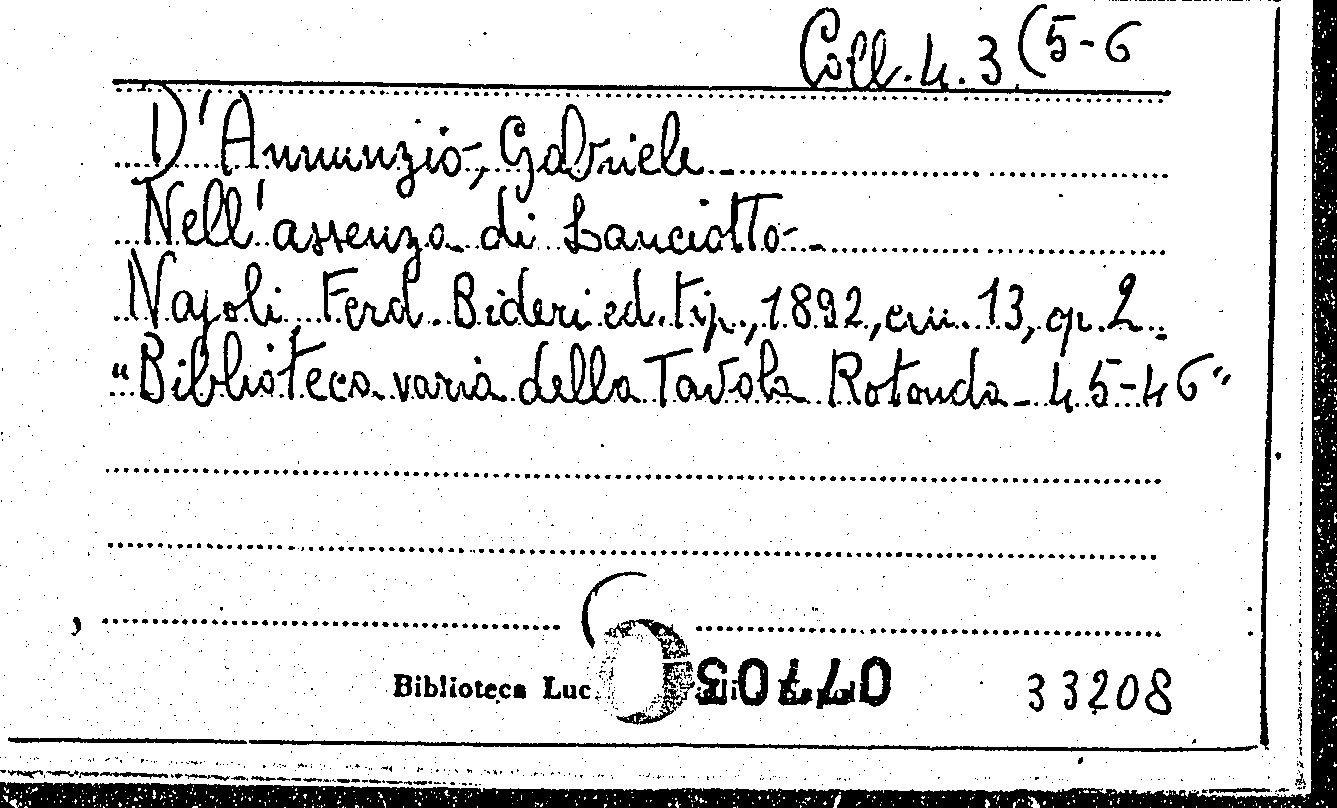 Coll. 4. 3 (5-6
D'Annunzio, Gabriele
Nell'assenza di Lanciotto -
Napoli, Ferd. Bideri ed. tip., 1892, cm. 13, op. 2.
"Biblioteca varia della Tavola Rotonda - 45-46"
Biblioteca Luc
33208